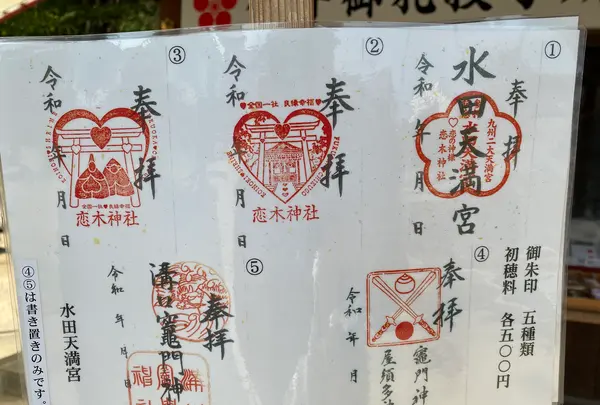 ①
奉拝
水田天満宮
九州二大天満宮
恋の神様
恋木神社
令和 年 月 日
②
奉拝
全国一社 良縁幸福
恋木神社
令和 年 月 日
③
奉拝
全国一社 良縁幸福
恋木神社
令和 年 月 日
御朱印 五種類
初穂料 各五〇〇円
④
奉拝
竈門神
屋須多神
令和 年 月
⑤
奉拝
溝口竈門神
令和 年 月 日
水田天満宮
④⑤は書き置きのみです。